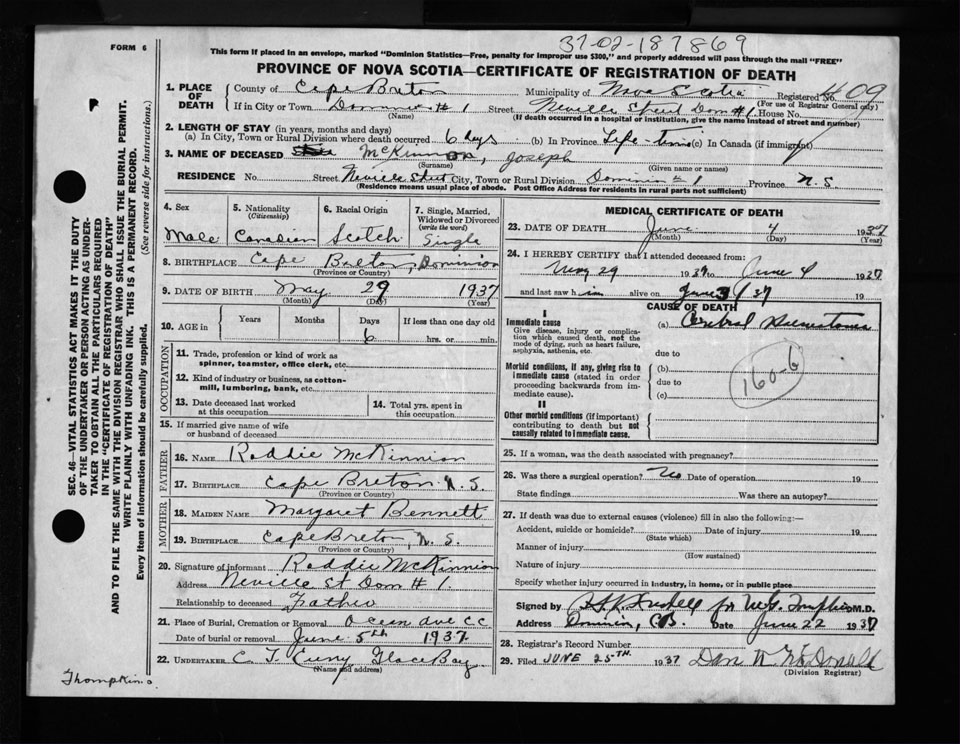 37-02-187869
FORM 6
This form if placed in an envelope, marked "Dominion Statistics—Free, penalty for improper use $300," and properly addressed will pass through the mail "FREE"
PROVINCE OF NOVA SCOTIA—CERTIFICATE OF REGISTRATION OF DEATH
1. PLACE OF DEATH
County of Cape Breton Municipality of Nova Scotia Registered No. 409
(For use of Registrar General only)
If in City or Town Dominion # 1 Street Neville Street Dom #1 House No.
(Name) (If death occurred in a hospital or institution, give the name instead of street and number)
2. LENGTH OF STAY (in years, months and days)
(a) In City, Town or Rural Division where death occurred 6 days (b) In Province Life-time (c) In Canada (if immigrant)
3. NAME OF DECEASED McKinnon, Joseph
(Surname) (Given name or names)
RESIDENCE No. Street Neville Street City, Town or Rural Division Dominion # 1 Province N.S
(Residence means usual place of abode. Post Office Address for residents in rural parts not sufficient)
4. Sex
Male
5. Nationality
(Citizenship)
Canadian
6. Racial Origin
Scotch
7. Single, Married, Widowed or Divorced
(write the word)
Single
8. BIRTHPLACE Cape Breton, Dominion
(Province or Country)
9. DATE OF BIRTH May 29 1937
(Month) (Day) (Year)
10. AGE in Years Months Days If less than one day old
6 hrs. or min.
OCCUPATION
11. Trade, profession or kind of work as
spinner, teamster, office clerk, etc.
12. Kind of industry or business, as cotton-
mill, lumbering, bank, etc.
13. Date deceased last worked
at this occupation
14. Total yrs. spent in
this occupation
15. If married give name of wife
or husband of deceased
FATHER
16. NAME Roddie McKinnion
17. BIRTHPLACE Cape Breton N.S.
(Province or Country)
MOTHER
18. MAIDEN NAME Margaret Bennett
19. BIRTHPLACE Cape Breton, N.S.
(Province or Country)
20. Signature of informant Roddie McKinnion
Address Neville St Dom # 1.
Relationship to deceased Father
21. Place of Burial, Cremation or Removal Ocean Ave CC
Date of burial or removal June 5th 1937
22. UNDERTAKER C. T. Glace Bay
(Name and address)
MEDICAL CERTIFICATE OF DEATH
23. DATE OF DEATH June 4 1937
(Month) (Day) (Year)
24. I HEREBY CERTIFY that I attended deceased from:
May 29 1937 to June 4 1937
and last saw him alive on June 3/37 19
CAUSE OF DEATH
I
Immediate cause
Give disease, injury or complica-
tion which caused death, not the
mode of dying, such as heart failure,
asphyxia, asthenia, etc.
(a) Cerebral
due to
Morbid conditions, if any, giving rise to
immediate cause (stated in order
proceeding backwards from im-
mediate cause).
(b)
due to
(c)
160-6
II
Other morbid conditions (if important)
contributing to death but not
causally related to immediate cause.
25. If a woman, was the death associated with pregnancy?
26. Was there a surgical operation? No Date of operation 19
State findings Was there an autopsy?
27. If death was due to external causes (violence) fill in also the following:—
Accident, suicide or homicide? Date of injury 19
(State which)
Manner of injury
(How sustained)
Nature of injury
Specify whether injury occurred in industry, in home, or in public place
Signed by for M.D.
Address Dominion, C.B. Date June 22 1937
28. Registrar's Record Number
29. Filed JUNE 25TH. 1937 Dan McDonald
(Division Registrar)
SEC. 46—VITAL STATISTICS ACT MAKES IT THE DUTY
OF THE UNDERTAKER OR PERSON ACTING AS UNDER-
TAKER TO OBTAIN ALL THE PARTICULARS REQUIRED
IN THE "CERTIFICATE OF REGISTRATION OF DEATH"
AND TO FILE THE SAME WITH THE DIVISION REGISTRAR WHO SHALL ISSUE THE BURIAL PERMIT.
WRITE PLAINLY WITH UNFADING INK. THIS IS A PERMANENT RECORD.
Every item of information should be carefully supplied. (See reverse side for instructions.)
Thompkins